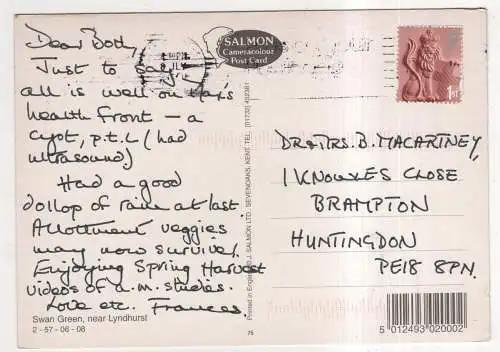 Dear Both,
Just to
all is well on Max's
health front – a
cyst, p.t.l (had
ultrasound)
Had a good
dollop of rain at last.
Allotment veggies
may now survive!
Enjoying Spring Harvest
videos of a.m. studies.
Love etc. Frances.
Swan Green, near Lyndhurst
2-57-06-08
SALMON
Cameracolour
Post Card
Printed in England © J. SALMON LTD, SEVENOAKS, KENT. TEL: (01732) 452381
75
1ST
DR & MRS. B. MACARTNEY,
1 KNOWLES CLOSE
BRAMPTON
HUNTINGDON
PE18 8PN.
5 012493 020002